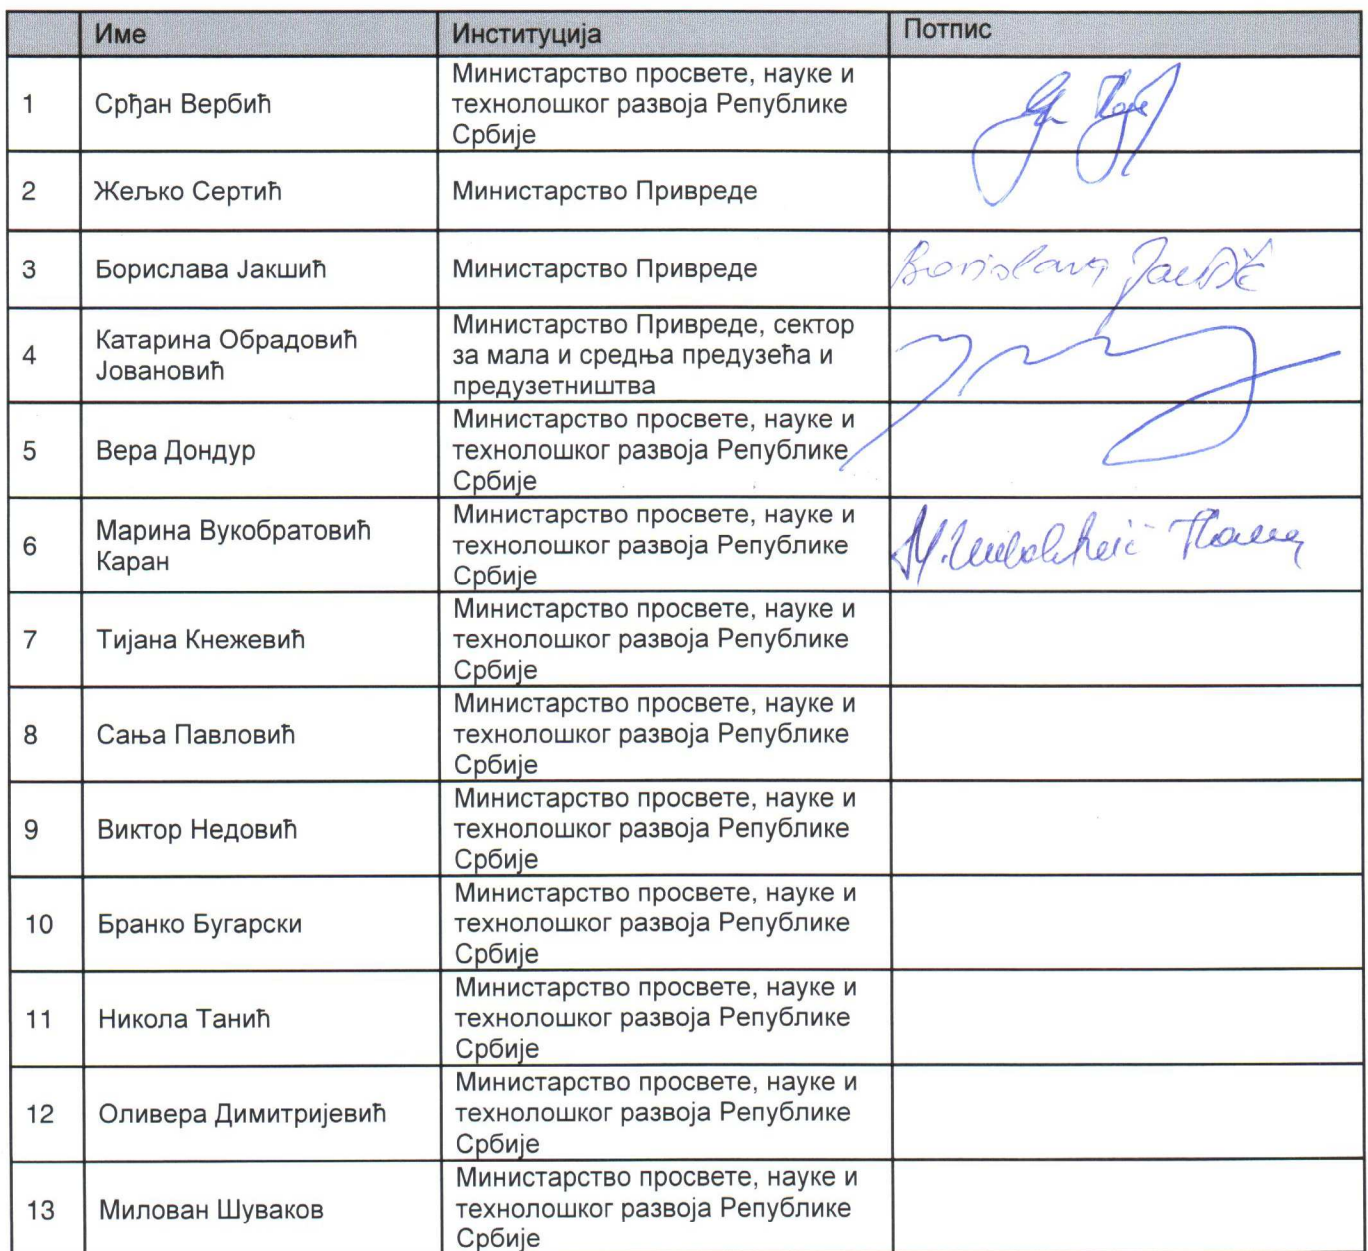 Име Институција Потпис
1 Срђан Вербић Министарство просвете, науке и
технолошког развоја Републике
Србије
2 Жељко Сертић Министарство Привреде
3 Борислава Јакшић Министарство Привреде Borislava Jakšić
4 Катарина Обрадовић
Јовановић
Министарство Привреде, сектор
за мала и средња предузећа и
предузетништва
5 Вера Дондур Министарство просвете, науке и
технолошког развоја Републике
Србије
6 Марина Вукобратовић
Каран
Министарство просвете, науке и
технолошког развоја Републике
Србије
7 Тијана Кнежевић Министарство просвете, науке и
технолошког развоја Републике
Србије
8 Сања Павловић Министарство просвете, науке и
технолошког развоја Републике
Србије
9 Виктор Недовић Министарство просвете, науке и
технолошког развоја Републике
Србије
10 Бранко Бугарски Министарство просвете, науке и
технолошког развоја Републике
Србије
11 Никола Танић Министарство просвете, науке и
технолошког развоја Републике
Србије
12 Оливера Димитријевић Министарство просвете, науке и
технолошког развоја Републике
Србије
13 Милован Шуваков Министарство просвете, науке и
технолошког развоја Републике
Србије